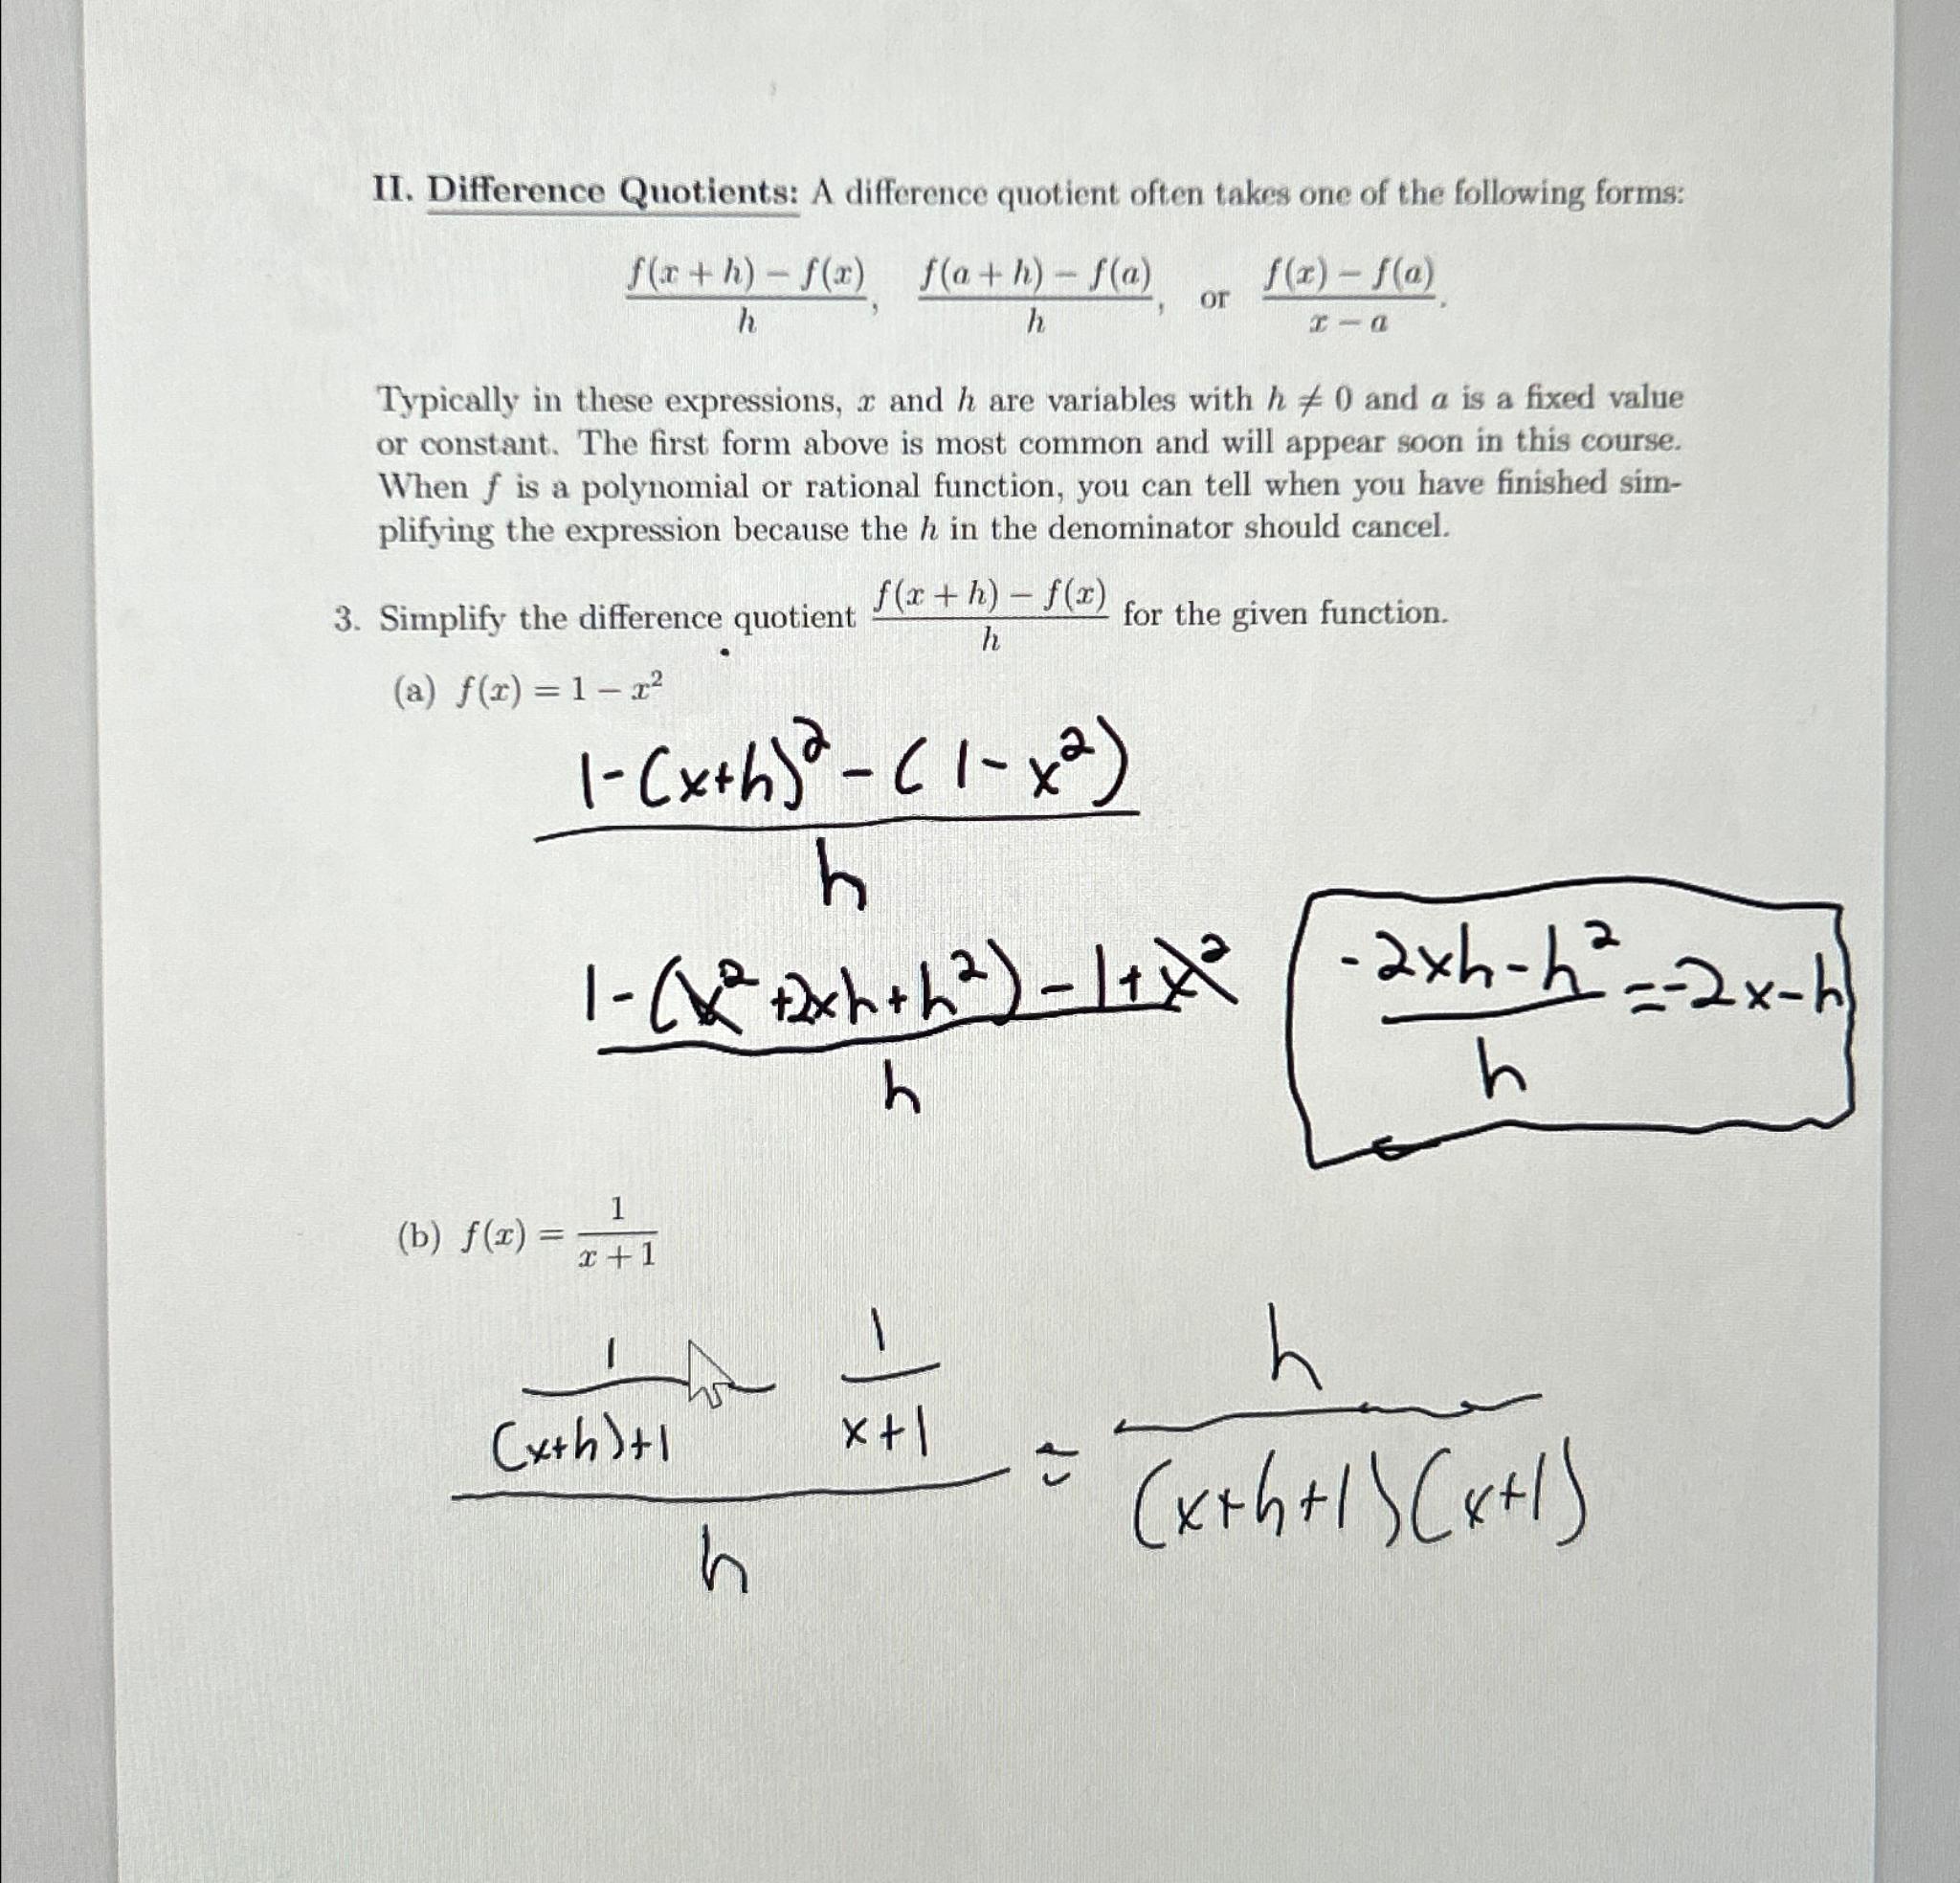 II. Difference Quotients: A difference quotient often takes one of the following forms:
f(x + h) − f(x)/h, f(a + h) − f(a)/h, or f(x) − f(a)/x − a.
Typically in these expressions, x and h are variables with h ≠ 0 and a is a fixed value
or constant. The first form above is most common and will appear soon in this course.
When f is a polynomial or rational function, you can tell when you have finished sim-
plifying the expression because the h in the denominator should cancel.
3. Simplify the difference quotient f(x + h) − f(x)/h for the given function.
(a) f(x) = 1 − x²
1-(x+h)² - (1-x²)
h
1-(x²+2xh+h²)-1+x²
h
-2xh-h²/h = -2x-h
(b) f(x) = 1/x + 1
1 1 h
(x+h)+1 x+1 = (x+h+1)(x+1)
h